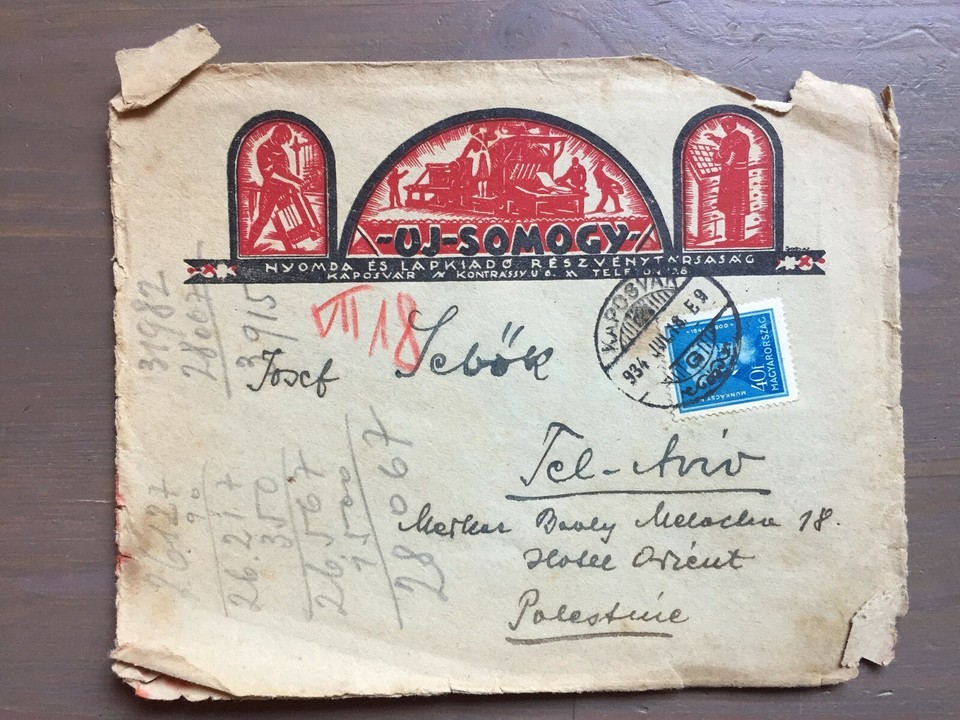 -UJ-SOMOGY-
NYOMDA ÉS LAPKIADÓ RÉSZVÉNYTÁRSASÁG
KAPOSVÁR KONTRÁSSY U 6. TELEFON
VII 18
KAPOSVÁR
934 JUL 18 E 9
40f
MAGYARORSZÁG
MUNKÁCSY
Josef Sebők
Tel-Aviv
Merkas Baaley Melacha 18.
Hotel Orient
Palestine
3982
28007
3915
26.217
350
26.567
1.500
28067